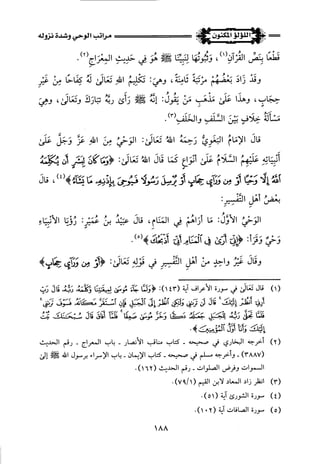 اللؤلؤ المكنون
مراتب الوحي وشدة نزوله
قطعًا بنص القرآن(١)، وثبوتها لنبينا ﷺ هو في حديث المعراج(٢).
وقد زاد بعضهم مرتبة ثامنة، وهي: تكليم الله تعالى له كفاحًا من غير
حجاب، وهذا على مذهب من يقول: إنه ﷺ رأى ربه تبارك وتعالى، وهي
مسألة خلاف بين السلف والخلف(٣).
قال الإمام البغوي رحمه الله تعالى: الوحي من الله عز وجل على
أنبيائه عليهم السلام على أنواع كما قال الله تعالى: ﴿وما كان لبشر أن يكلمه
الله إلا وحيا أو من وراي حجاب أو يرسل رسولا فيوحي بإذنه ما يشاء﴾(٤)، قال
بعض أهل التفسير:
الوحي الأول: ما أراهم في المنام، قال عبيد بن عمير: رؤيا الأنبياء
وحي وقرأ: ﴿إني أرى في المنام أني أذبحك﴾(٥).
وقال غير واحد من أهل التفسير في قوله تعالى: ﴿أو من وراي حجاب﴾
(١) قال تعالى في سورة الأعراف آية (١٤٣): ﴿ولما جاء موسى لميقاتنا وكلمه ربه قال رب
أرني أنظر إليك قال لن تراني ولكن انظر إلى الجبل فإن استقر مكانه فسوف تراني
فلما تجلى ربه للجبل جعله دكا وخر موسى صعقا فلما أفاق قال سبحانك تبت
إليك وأنا أول المؤمنين﴾.
(٢) أخرجه البخاري في صحيحه ـ كتاب مناقب الأنصار ـ باب المعراج ـ رقم الحديث
(٣٨٨٧) ـ وأخرجه مسلم في صحيحه ـ كتاب الإيمان ـ باب الإسراء برسول الله ﷺ إلى
السموات وفرض الصلوات ـ رقم الحديث (١٦٢).
(٣) انظر زاد المعاد لابن القيم (٧٩/١).
(٤) سورة الشورى آية (٥١).
(٥) سورة الصافات آية (١٠٢).
١٨٨